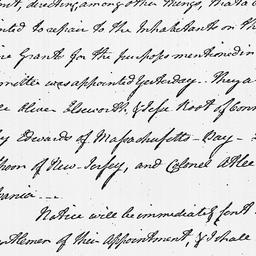 directing, among other things, that a
to repair to the Inhabitants on the
Grants for the purposes mentioned in
was appointed yesterday. They a
Oliver Elsworth, & Jesse Root of Conn
Edwards of Massachusetts-Bay-
of New-Jersey, and Colonel Atlee
vania --
Notice will be immediately sent
entlemen of their appointment, & I shall